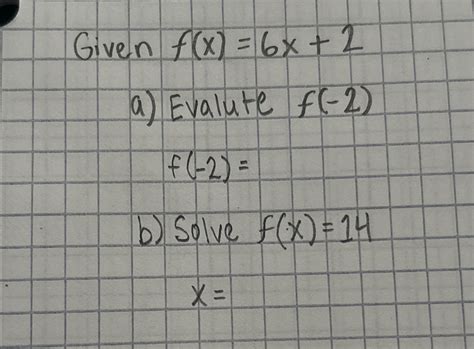 Given f(x) = 6x + 2
a) Evalute f(-2)
f(-2) =
b) Solve f(x) = 14
x =